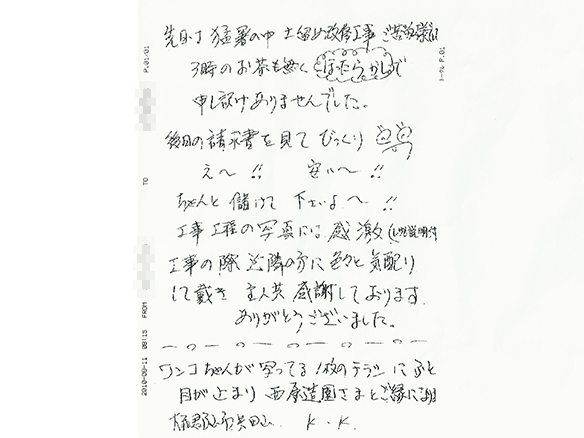 先日は 猛暑の中 土留め改修工事 ご苦労様
3時のお茶も無く ほったらかしで
申し訳ありませんでした。
後日の請求書を見て びっくり
え〜 !! 安い〜 !!
ちゃんと 儲けて 下さいよ〜 !!
工事工程の写真には 感激 (しかも説明付
工事の際 近隣の方に色々と気配り
して戴き 主人共 感謝しております。
ありがとうございました。
ワンコちゃんが写ってる1枚のチラシにふと
目が止まり 西原造園さまとご縁に
K.K